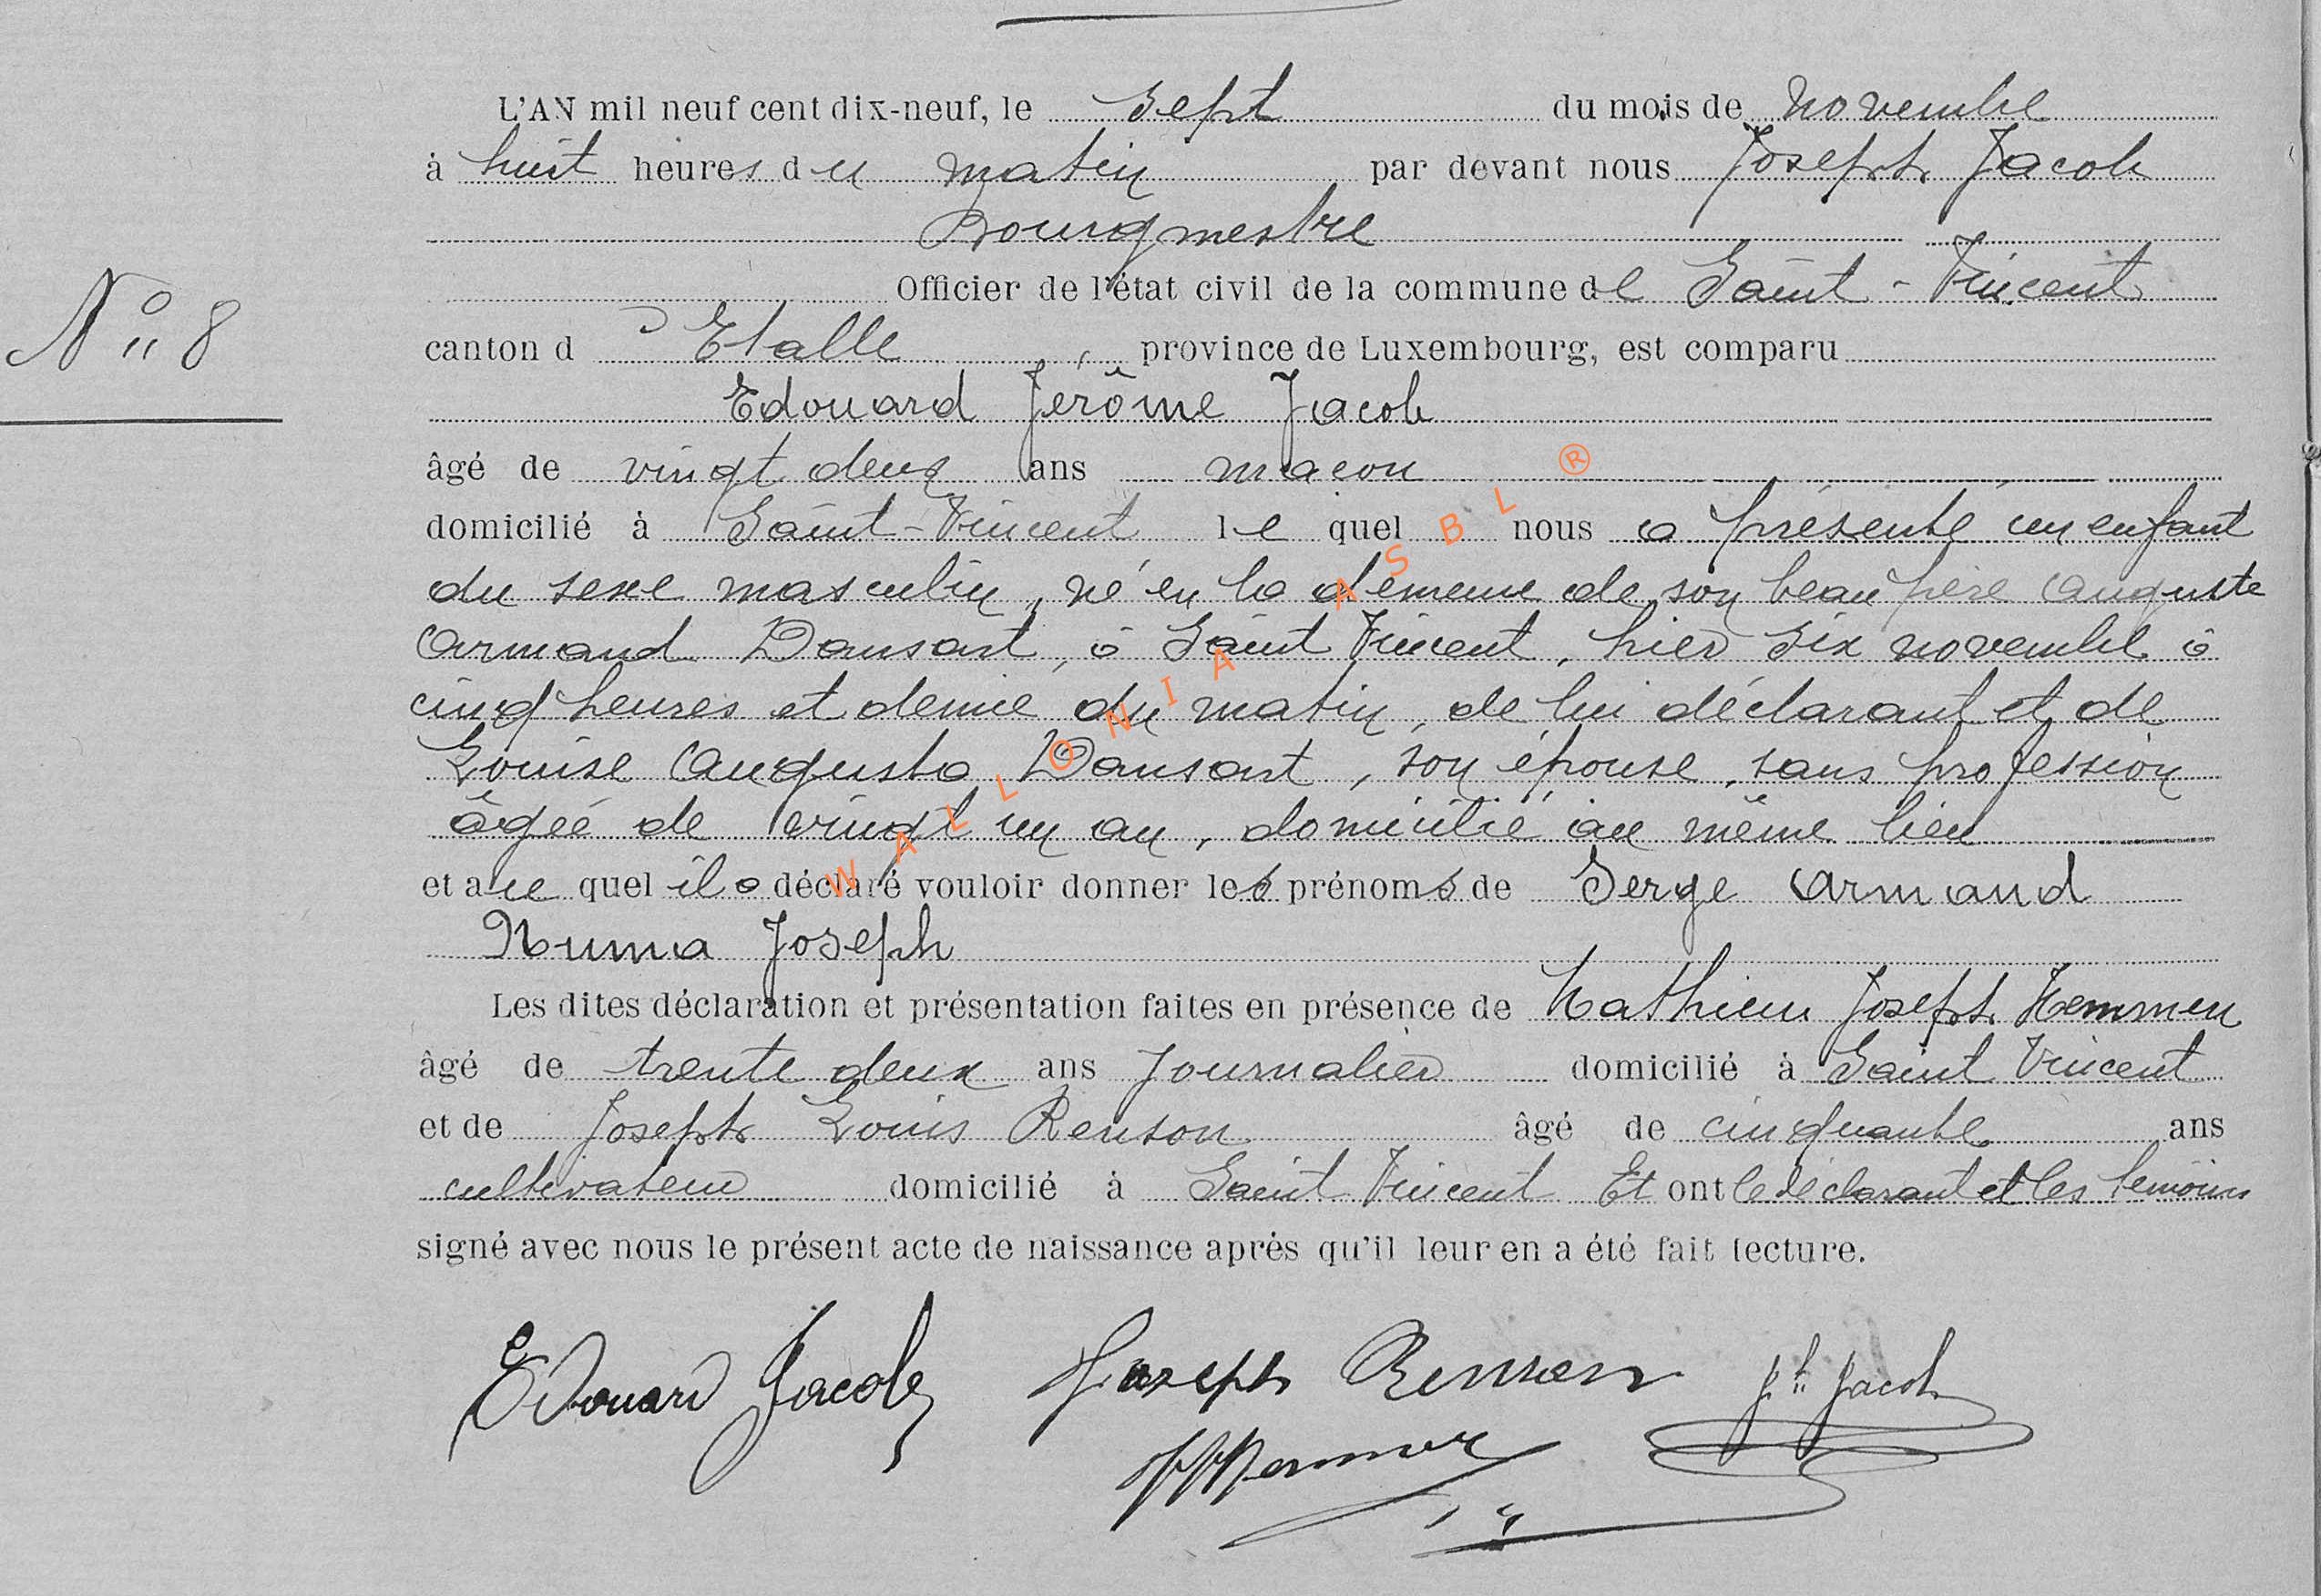 L'AN mil neuf cent dix-neuf, le sept du mois de novembre
à huit heures du matin par devant nous Joseph Jacob
Bourgmestre
Officier de l'état civil de la commune de Saint-Vincent
N° 8
canton d'Etalle, province de Luxembourg, est comparu
Edouard Jérôme Jacob
âgé de vingt deux ans maçon
domicilié à Saint-Vincent lequel nous a présenté un enfant
du sexe masculin, né en la demeure de son beau père Auguste
Armand Dansart, à Saint Vincent, hier six novembre à
cinq heures et demie du matin, de lui déclarant et de
Louise Augusta Dansart, son épouse, sans profession
âgée de vingt un an, domicilié au même lieu
et auquel il a déclaré vouloir donner les prénoms de Serge Armand
Numa Joseph
Les dites déclaration et présentation faites en présence de Mathieu Joseph Hemmen
âgé de trente deux ans journalier domicilié à Saint Vincent
et de Joseph Louis Renson âgé de cinquante ans
cultivateur domicilié à Saint Vincent Et ont le déclarant et les témoins
signé avec nous le présent acte de naissance après qu'il leur en a été fait lecture.
Edouard Jacob Joseph Renson Jh Jacob
Hemmen
WALLONIA ASBL ®